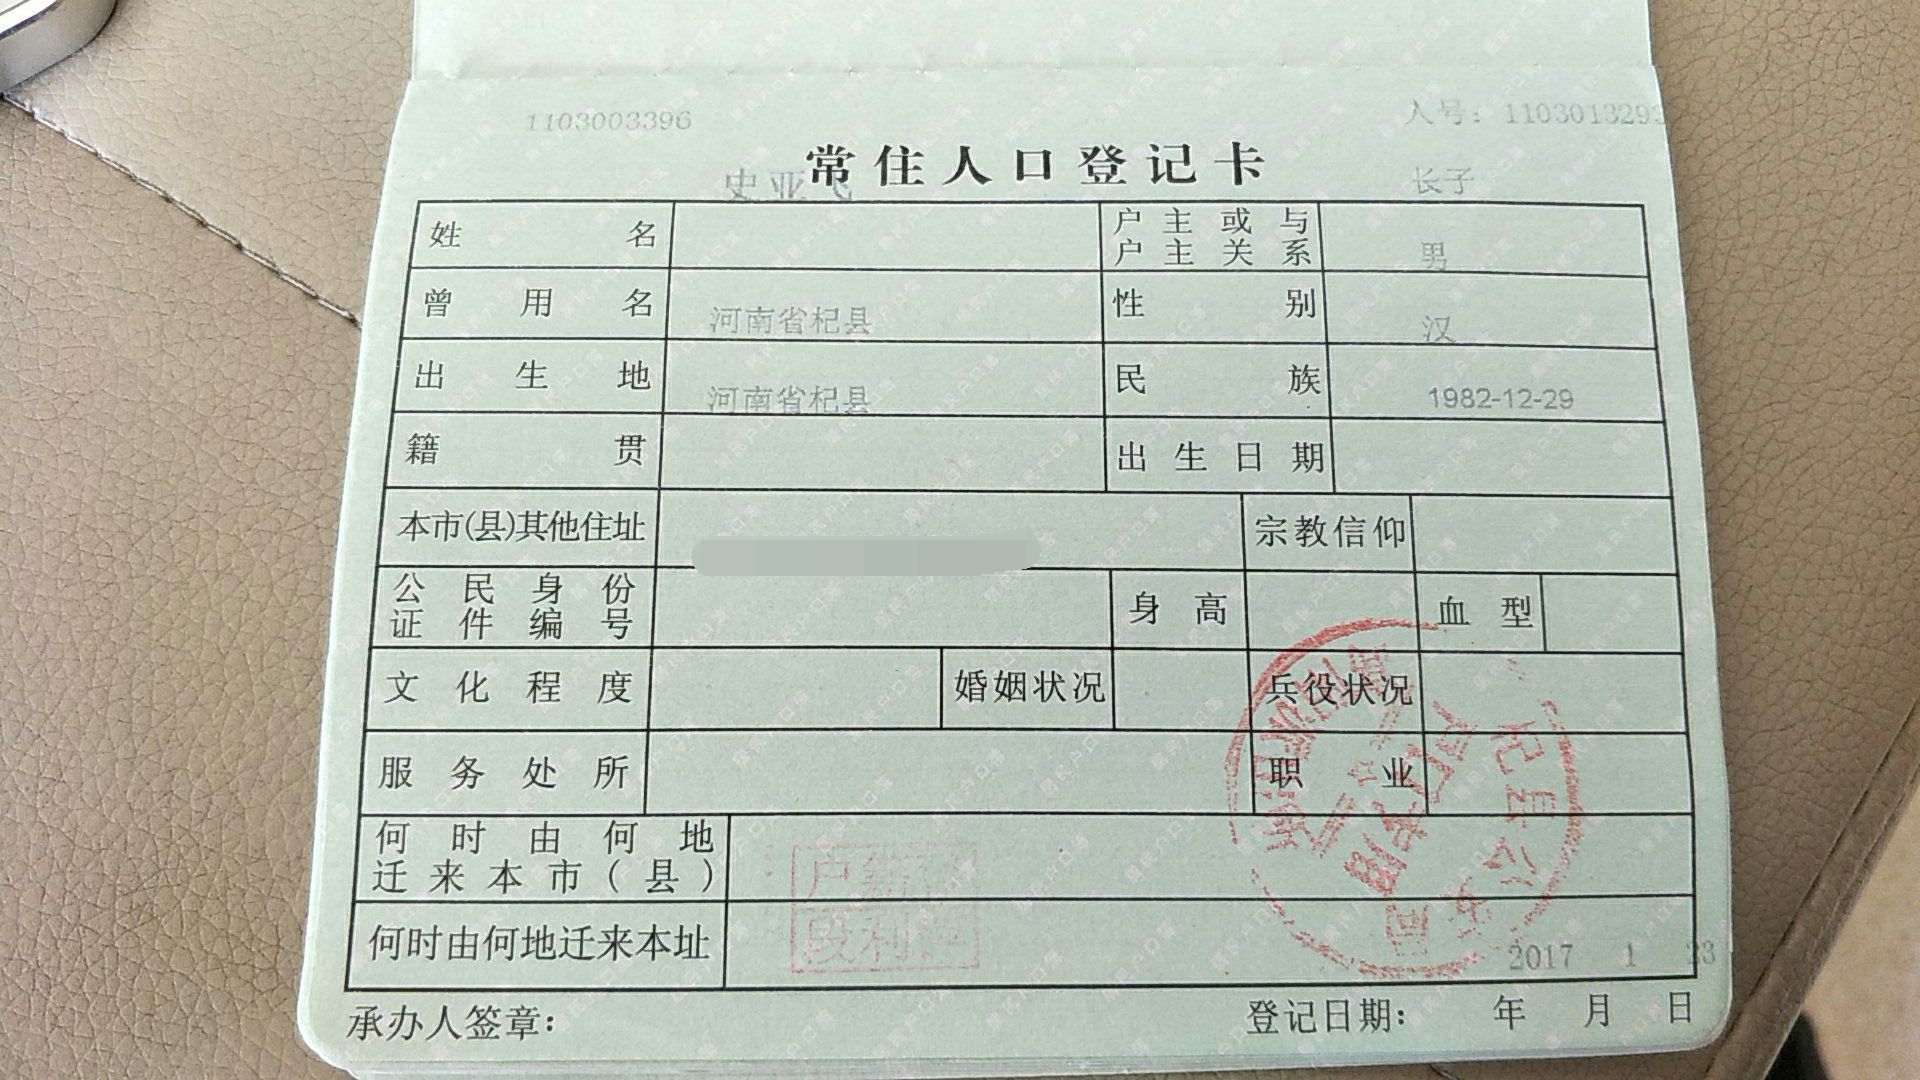 1103003396 人号: 110301329
常住人口登记卡
史亚飞 长子
姓名 户主或与户主关系
男
曾用名 性别
河南省杞县 汉
出生地 民族
河南省杞县 1982-12-29
籍贯 出生日期
本市(县)其他住址 宗教信仰
公民身份证件编号 身高 血型
文化程度 婚姻状况 兵役状况
服务处所 职业
何时由何地迁来本市(县)
户
段利
何时由何地迁来本址
2017 1 23
承办人签章: 登记日期: 年 月 日